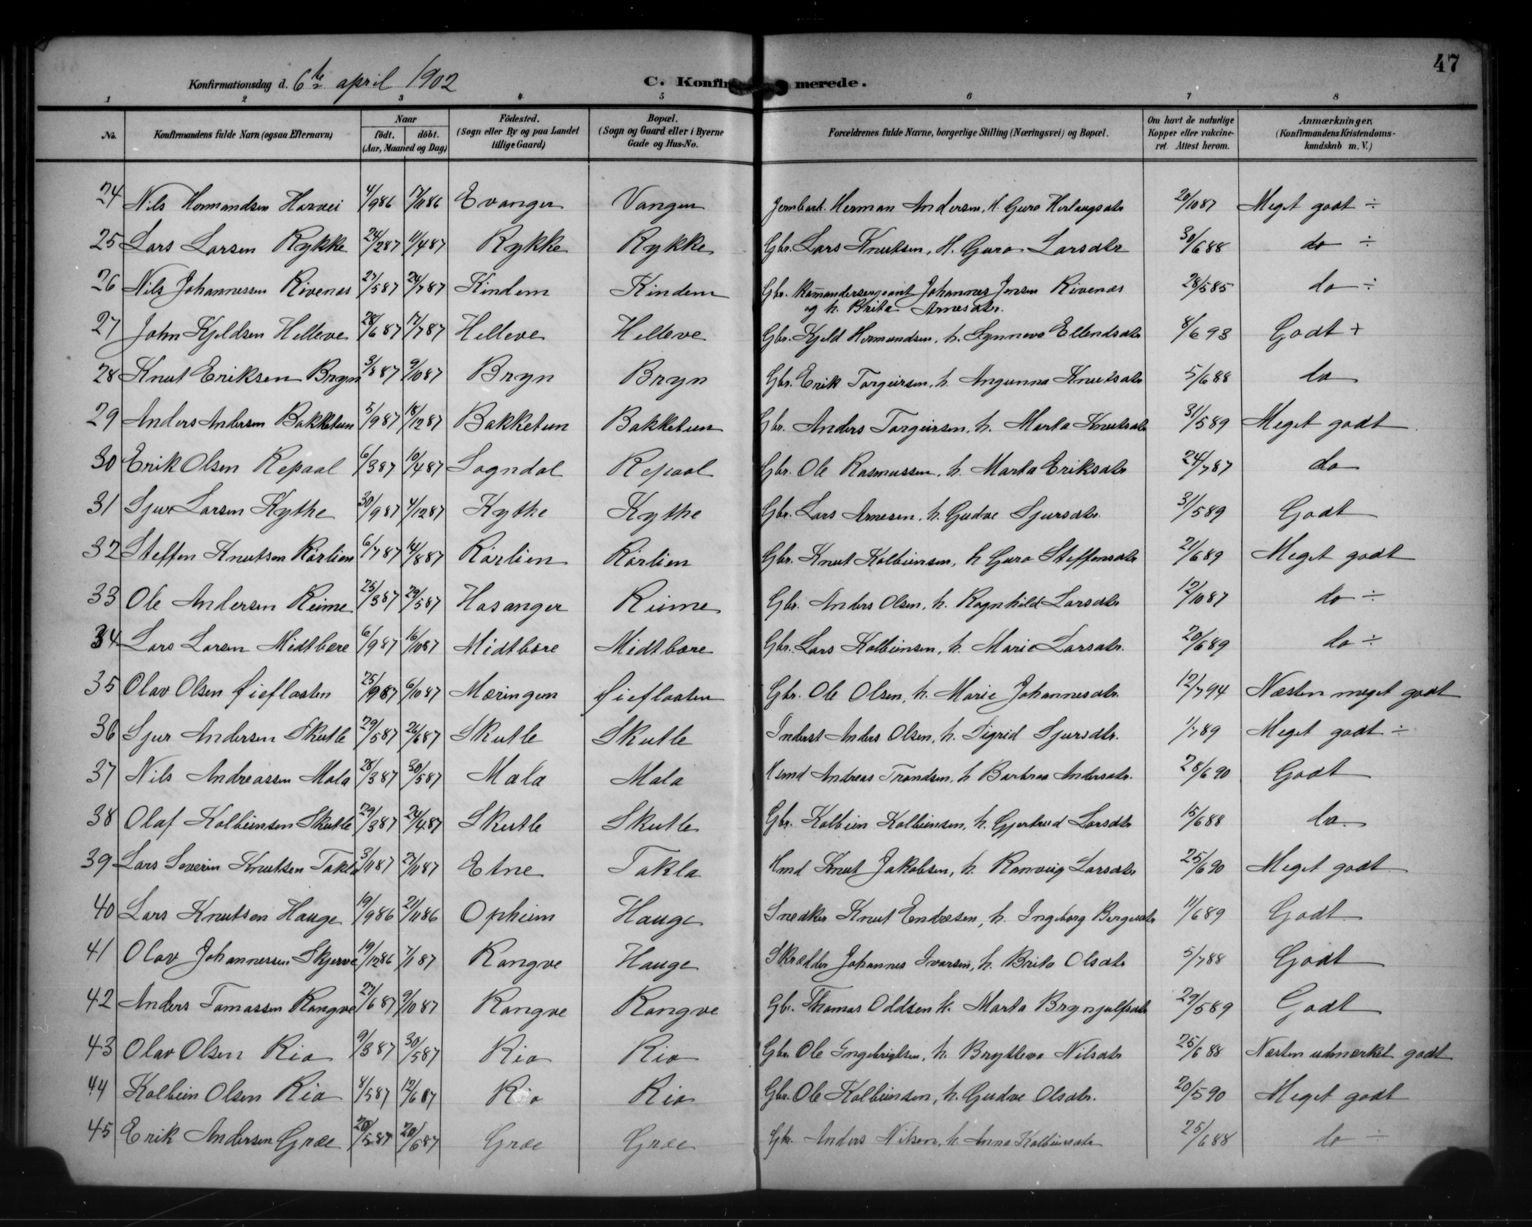 47
Konfirmationsdag d. 6te april 1902 C. Konfirmerede.
1 2 3 4 5 6 7 8
No. Konfirmandens fulde Navn (ogsaa Efternavn) Naar født. døbt. (Aar, Maaned og Dag) Fødested. (Sogn eller By og paa Landet tillige Gaard) Bopæl. (Sogn og Gaard eller i Byerne Gade og Hus-No. Forældrenes fulde Navne, borgerlige Stilling (Næringsvei) og Bopæl. Om havt de naturlige Kopper eller vaccineret. Attest herom. Anmærkninger. (Konfirmandens Kristendomskundskab m. V.)
24 Nils Hermandsen Harvei 4/986 17/1086 Evanger Vangen Herman Andersen, H. Guro Herlaugsdtr 20/1087 Meget godt ÷
25 Lars Larsen Rykke 24/287 11/487 Rykke Rykke Gbr. Lars Knutsen, H. Guro Larsdtr 30/688 do ÷
26 Nils Johannessen Rivenes 27/587 24/787 Kindem Kindem Gbr. Kommandersergeant Johannes Jensen Rivenes 28/585 do ÷
og h. Brita Arnesdtr.
27 John Kjeldsen Helleve 28/687 17/787 Helleve Helleve Gbr. Kjeld Hermundsen, h. Synneva Ellendsdtr 8/693 Godt +
28 Knut Eriksen Bryn 3/887 9/1087 Bryn Bryn Gbr. Erik Torgeirsen, h. Angunna Knutsdtr 5/688 do
29 Anders Andersen Bakketun 5/987 18/1287 Bakketun Bakketun Gbr. Anders Torgeirsen, h. Marta Knutsdtr 31/589 Meget godt
30 Erik Olsen Repaal 6/387 10/487 Sogndal Repaal Gbr. Ole Rasmussen, h. Marta Eriksdtr 24/787 do
31 Sjur Larsen Kythe 30/987 4/1287 Kythe Kythe Gbr. Lars Arnesen, h. Gudve Sjursdtr. 31/589 Godt
32 Steffen Knutsen Rørlien 6/787 14/887 Rørlien Rørlien Gbr. Knut Kolbeinsen, h Guro Steffensdtr 21/689 Meget godt
33 Ole Andersen Reime 25/387 29/587 Hosanger Reime Gbr. Anders Olsen, h. Ragnhild Larsdtr 12/1087 do ÷
34 Lars Larsen Midtbøre 6/987 16/1087 Midtbøre Midtbøre Gbr. Lars Kolbeinsen, h. Marie Larsdtr. 20/689 do ÷
35 Olav Olsen Gjeflaaten 25/987 6/1087 Mæringen Gjeflaaten Gbr. Ole Olsen, h. Marie Johannesdtr 12/794 Næsten meget godt
36 Sjur Andersen Skutle 29/587 26/687 Skutle Skutle Inderst Anders Olsen, h. Sigrid Sjursdtr. 1/789 Meget godt ÷
37 Nils Andreassen Mala 28/387 30/587 Mala Mala Hsmd Andreas Trondsen, h Barbraa Andersdtr. 28/690 Godt
38 Olaf Kolbeinsen Skutle 29/387 24/487 Skutle Skutle Gbr. Kolbein Kolbeinsen, h. Gjertrud Larsdtr 15/688 do
39 Lars Severin Knutsen Takla 3/1087 2/1087 Etne Takla Hmd Knut Jakobsen, h. Ranveig Larsdtr 25/690 Meget godt
40 Lars Knutsen Hauge 19/986 21/1086 Opheim Hauge Snedker Knut Endresen, h. Ingeborg Bergesdtr 11/689 Godt
41 Olav Johannessen Skjerve 19/1286 7/187 Rongve Hauge Skrædder Johannes Ivarsen, h. Brita Olsdtr 5/788 Godt
42 Anders Tomassen Rongve 27/687 9/1087 Rongve Rongve Gbr. Thomas Oddsen h. Marta Brynjulfsdtr 29/589 Godt
43 Olav Olsen Rio 9/387 30/587 Rio Rio Gbr Ole Ingebrigtsen, h. Brytteva Nilsdtr 25/688 Næsten udmerket godt
44 Kolbein Olsen Rio 8/587 12/687 Rio Rio Gbr. Ole Kolbeinsen, h. Gudve Olsdtr. 20/590 Meget godt
45 Erik Andersen Græe 20/587 20/687 Græe Græe Gbr Anders Nilsen, h. Anna Kolbeinsdtr 25/688 do ÷